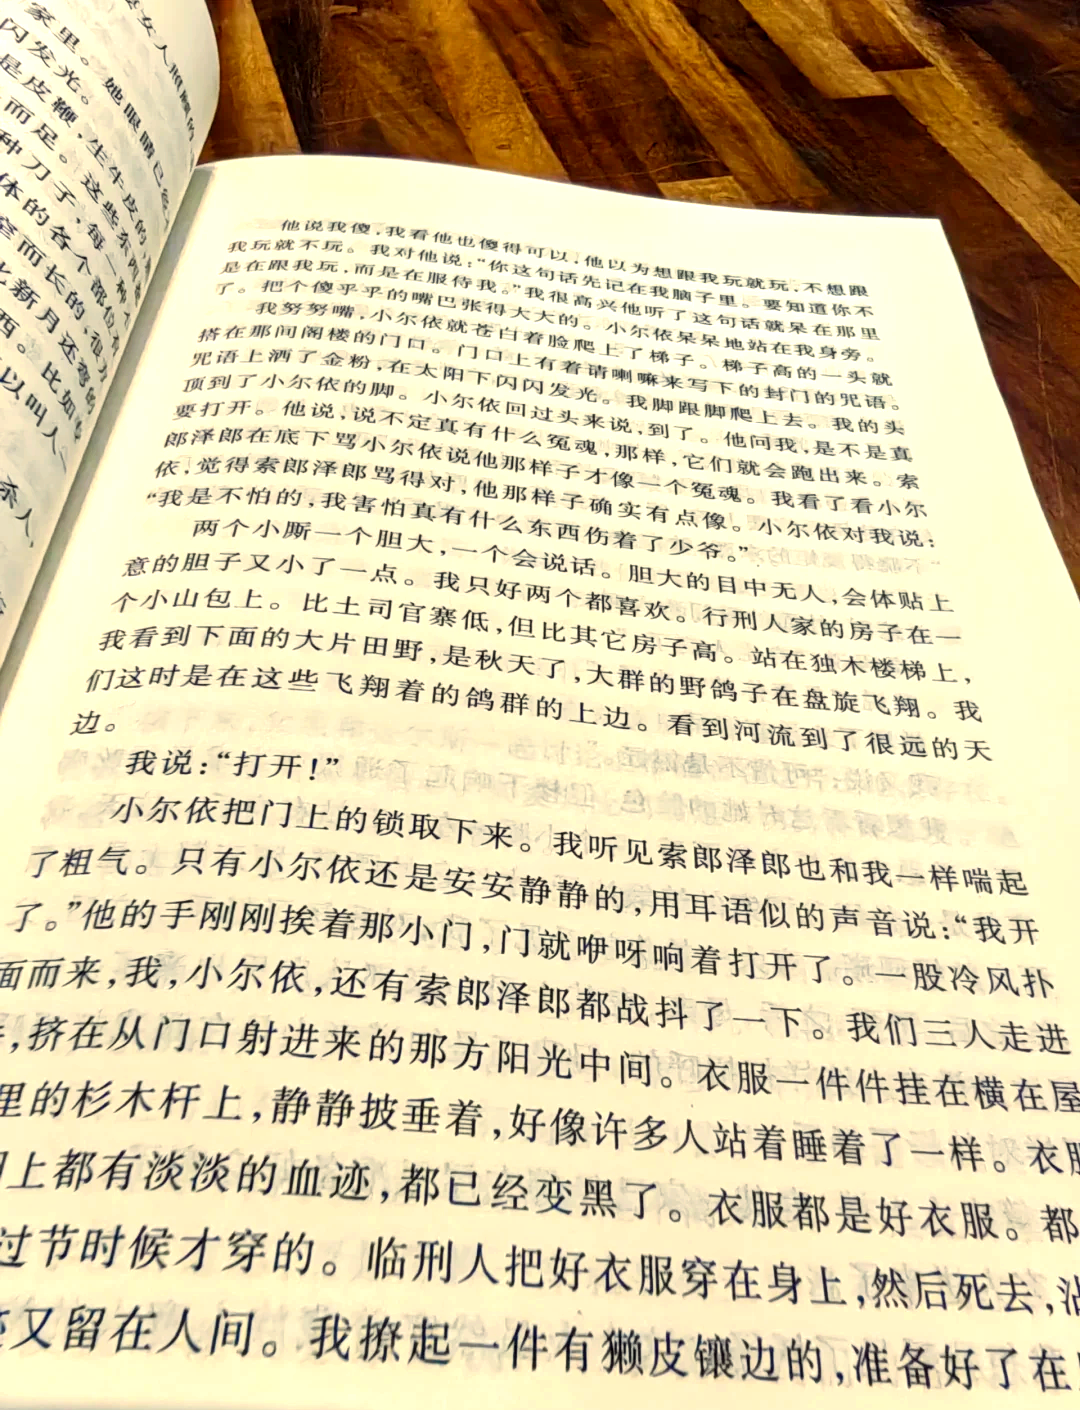 女人照顾的
家里。她眼睛已经
闪发光。
是皮鞭，生牛皮的
而足。这些东西
种刀子，每一种
体的各个部位有
窄而长的，很方
比新月还弯的
西。比如
以叫人
杀人，
他说我傻，我看他也傻得可以，他以为想跟我玩就玩，不想跟
我玩就不玩。我对他说：“你这句话先记在我脑子里。要知道你不
是在跟我玩，而是在服侍我。”我很高兴他听了这句话就呆在那里
了。把个傻乎乎的嘴巴张得大大的。小尔依呆呆地站在我身旁。
我努努嘴，小尔依就苍白着脸爬上了梯子。梯子高的一头就
搭在那间阁楼的门口。门口上有着请喇嘛来写下的封门的咒语。
咒语上洒了金粉，在太阳下闪闪发光。我脚跟脚爬上去。我的头
顶到了小尔依的脚。小尔依回过头来说，到了。他问我，是不是真
要打开。他说，说不定真有什么冤魂，那样，它们就会跑出来。索
郎泽郎在底下骂小尔依说他那样子才像一个冤魂。我看了看小尔
依，觉得索郎泽郎骂得对，他那样子确实有点像。小尔依对我说：
“我是不怕的，我害怕真有什么东西伤着了少爷。”
两个小厮一个胆大，一个会说话。胆大的目中无人，会体贴上
意的胆子又小了一点。我只好两个都喜欢。行刑人家的房子在一
个小山包上。比土司官寨低，但比其它房子高。站在独木楼梯上，
我看到下面的大片田野，是秋天了，大群的野鸽子在盘旋飞翔。我
们这时是在这些飞翔着的鸽群的上边。看到河流到了很远的天
边。
我说：“打开！”
小尔依把门上的锁取下来。我听见索郎泽郎也和我一样喘起
了粗气。只有小尔依还是安安静静的，用耳语似的声音说：“我开
了。”他的手刚刚挨着那小门，门就咿呀响着打开了。一股冷风扑
面而来，我，小尔依，还有索郎泽郎都战抖了一下。我们三人走进
，挤在从门口射进来的那方阳光中间。衣服一件件挂在横在屋
里的杉木杆上，静静披垂着，好像许多人站着睡着了一样。衣服
上都有淡淡的血迹，都已经变黑了。衣服都是好衣服。都
过节时候才穿的。临刑人把好衣服穿在身上，然后死去，沾
又留在人间。我撩起一件有獭皮镶边的，准备好了在